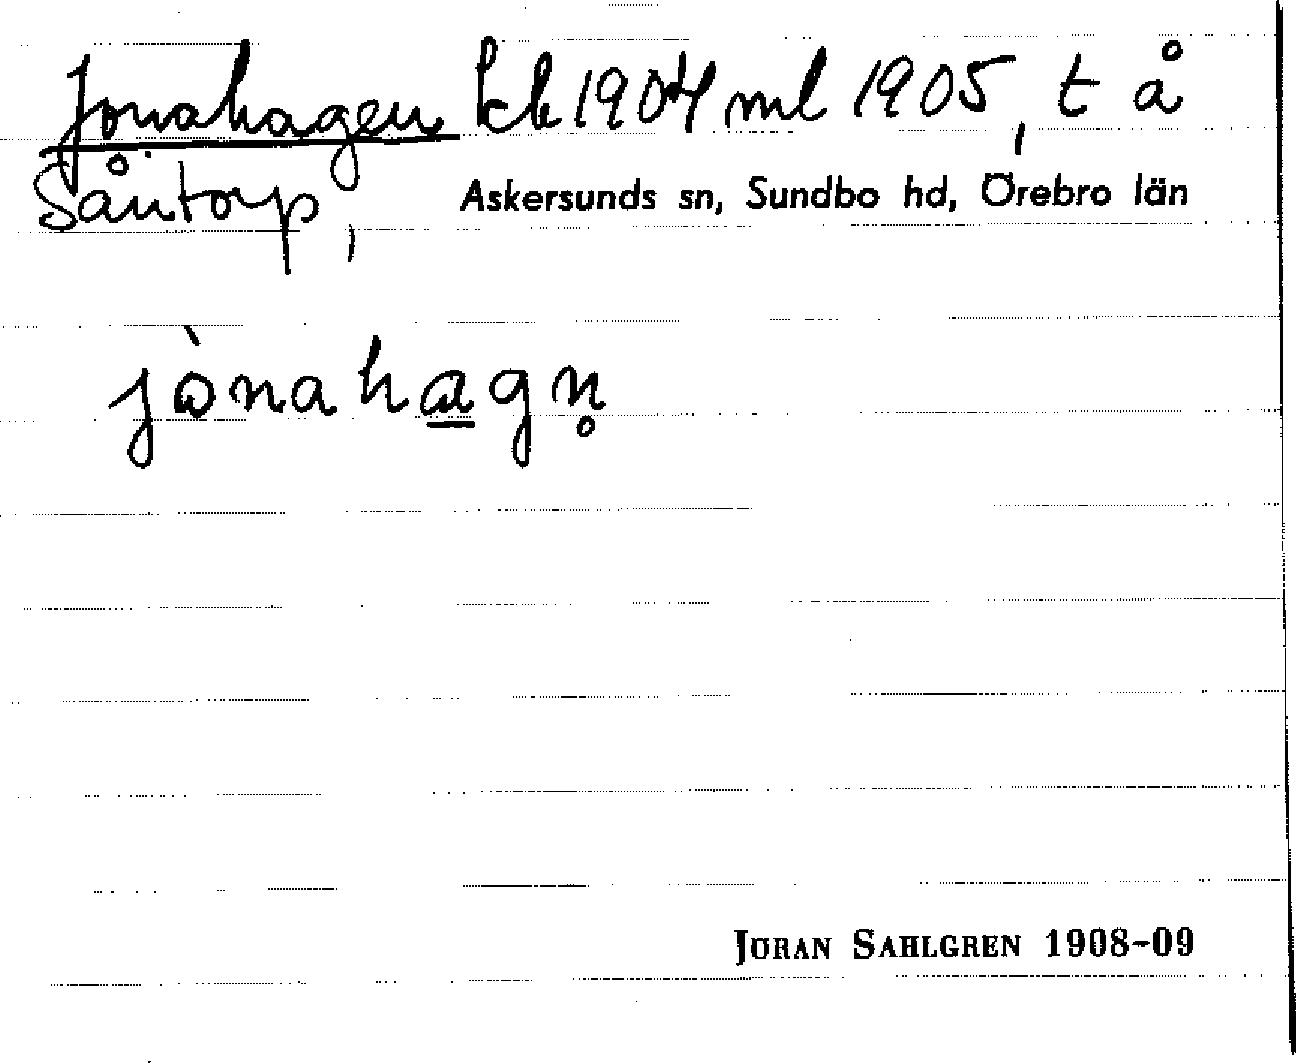 Jonahagen kk 1904 ml 1905, t å
Såntorp, Askersunds sn, Sundbo hd, Örebro län
jònahagn̥
JÖRAN SAHLGREN 1908-09